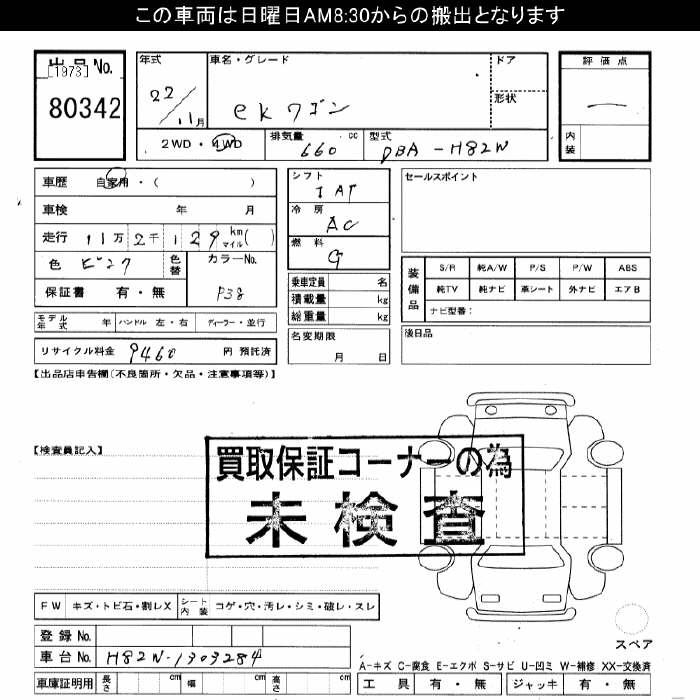 この車両は日曜日AM8:30からの搬出となります
出品No.
[1973]
80342
年式
22/11月
車名・グレード
ekワゴン
ドア
形状
評価点
—
内装
2WD・4WD
排気量 660 cc
型式 DBA-H82W
車歴 自家用・( )
車検 年 月
走行 11万2千129 km マイル( )
色 ピンク 色替
カラーNo. P38
保証書 有・無
シフト
IAT
冷房
AC
燃料
G
セールスポイント
乗車定員 名
積載量 kg
総重量 kg
装備品
S/R 純A/W P/S P/W ABS
純TV 純ナビ 革シート 外ナビ エアB
ナビ型番:
モデル年式 年 ハンドル 左・右 ディーラー・並行
名変期限 月 日
後日品
リサイクル料金 9460 円 預託済
【出品店申告欄(不良箇所・欠品・注意事項等)】
【検査員記入】
買取保証コーナーの為
未検査
FW キズ・トビ石・割レX シート内装 コゲ・穴・汚レ・シミ・破レ・スレ
登録No.
車台No. H82W-1303284
車庫証明用 長さ cm 幅 cm 高さ cm
スペア
A-キズ C-腐食 E-エクボ S-サビ U-凹ミ W-補修 XX-交換済
工具 有・無 ジャッキ 有・無